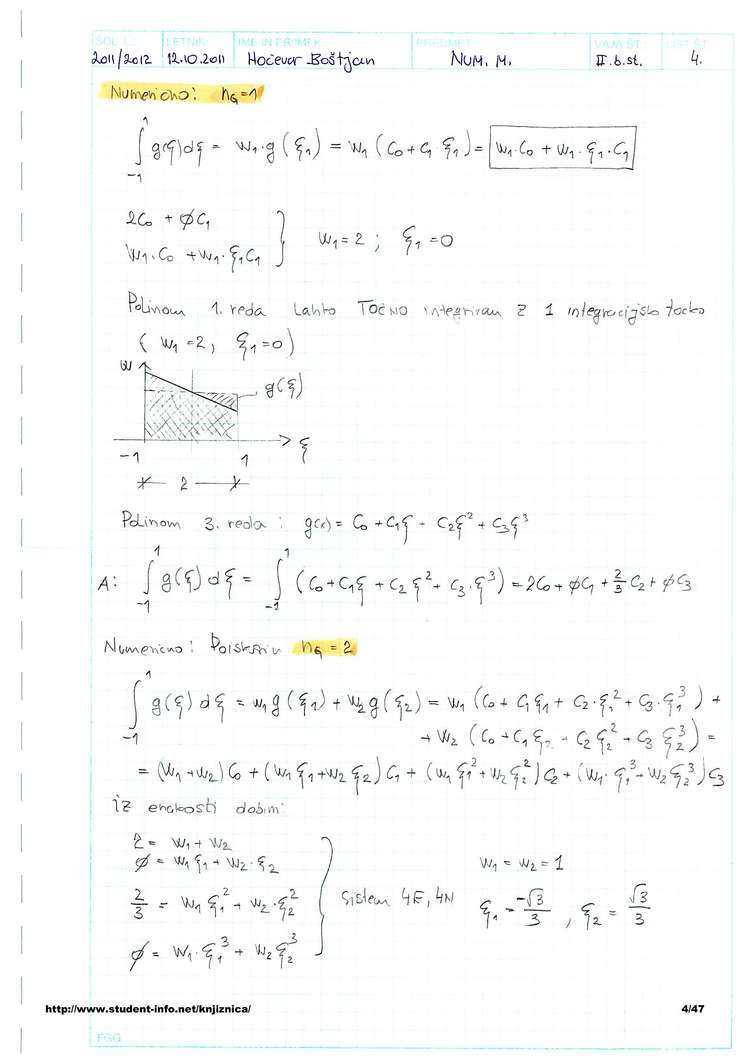 ŠOL. L. LETNIK IME IN PRIIMEK PREDMET VAJA ŠT. LIST ŠT.
2011/2012 12.10.2011 Hočevar Boštjan NUM. M. II.b.st. 4.
Numerično: n_G=1
∫_{-1}^{1} g(ξ)dξ = w₁·g(ξ₁) = w₁(C₀+C₁ ξ₁) = w₁·C₀ + w₁·ξ₁·C₁
2C₀ + ∅C₁
w₁·C₀ + w₁·ξ₁C₁ } w₁=2 ; ξ₁=0
Polinom 1. reda lahko TOČNO integriram z 1 integracijsko točko
( w₁=2, ξ₁=0)
w
g(ξ)
ξ
-1 1
2
Polinom 3. reda : g(x) = C₀ + C₁ξ + C₂ξ² + C₃ξ³
A: ∫_{-1}^{1} g(ξ)dξ = ∫_{-1}^{1} (C₀+C₁ξ + C₂ξ² + C₃·ξ³) = 2C₀ + ∅C₁ + 2/3 C₂ + ∅C₃
Numerično: Poiskusim n_G = 2
∫_{-1}^{1} g(ξ)dξ = w₁g(ξ₁) + w₂g(ξ₂) = w₁(C₀ + C₁ξ₁ + C₂·ξ₁² + C₃·ξ₁³) +
+ w₂(C₀+C₁ξ₂ + C₂ξ₂² + C₃ξ₂³) =
= (w₁+w₂)C₀ + (w₁ξ₁+w₂ξ₂)C₁ + (w₁ξ₁²+w₂ξ₂²)C₂ + (w₁·ξ₁³+w₂ξ₂³)C₃
iz enakosti dobim:
2 = w₁ + w₂
∅ = w₁ξ₁ + w₂·ξ₂
2/3 = w₁ξ₁² + w₂·ξ₂²
∅ = w₁·ξ₁³ + w₂ξ₂³
} sistem 4E, 4N
w₁ = w₂ = 1
ξ₁ = -√3/3 , ξ₂ = √3/3
http://www.student-info.net/knjiznica/ 4/47
FGG